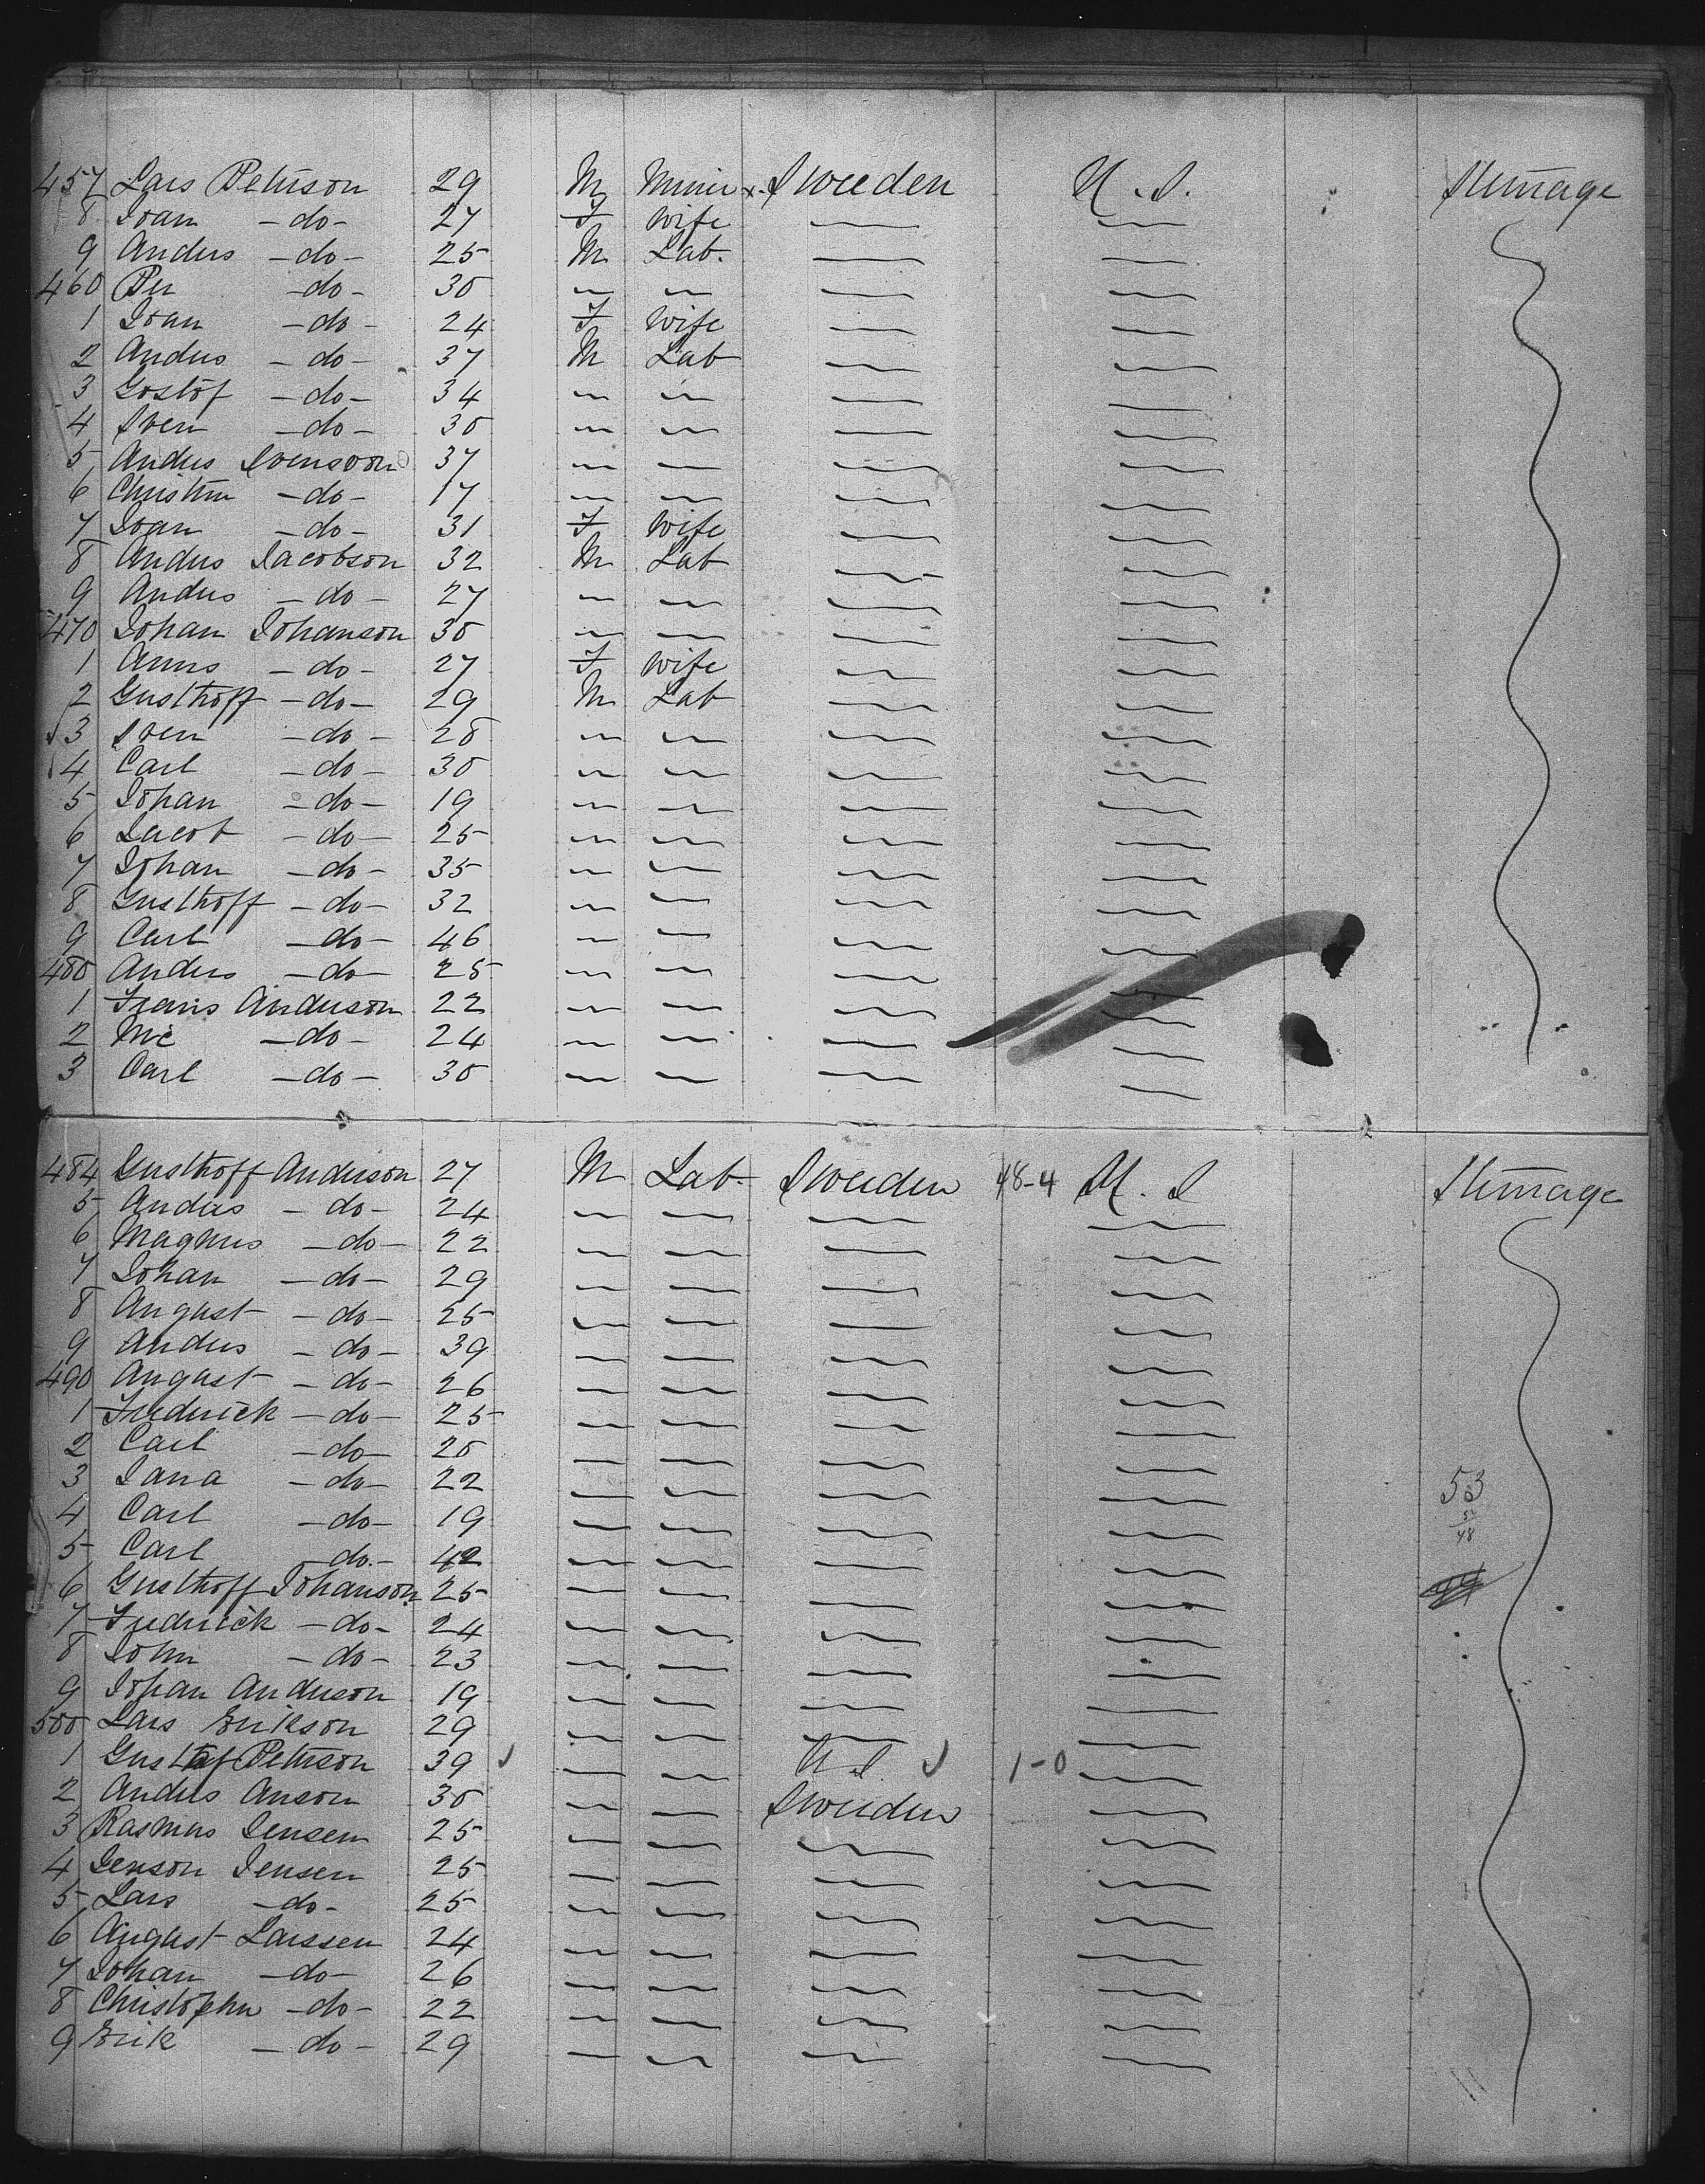 457 Lars Peterson 29 M Miner x Sweden U.S. Steerage
8 Joan -do- 27 F Wife
9 Anders -do- 25 M Lab.
460 Per -do- 30
1 Joan -do- 24 F Wife
2 Anders -do- 37 M Lab
3 Gostof -do- 34
4 Sven -do- 30
5 Anders Svensson 37
6 Christin -do- 17
7 Joan -do- 31 F Wife
8 Anders Jacobson 32 M Lab
9 Anders -do- 27
470 Johan Johanson 30
1 Anns -do- 27 F Wife
2 Gusthoff -do- 29 M Lab
3 Sven -do- 28
4 Carl -do- 30
5 Johan -do- 19
6 Jacob -do- 25
7 Johan -do- 35
8 Gusthoff -do- 32
9 Carl -do- 46
480 Anders -do- 25
1 Frans Anderson 22
2 -do- 24
3 Carl -do- 30
484 Gusthoff Anderson 27 M Lab. Sweden 48-4 U.S Steerage
5 Anders -do- 24
6 Magnus -do- 22
7 Johan -do- 29
8 August -do- 25
9 Anders -do- 39
490 August -do- 26
1 Frederick -do- 25
2 Carl -do- 20
3 Jana -do- 22 53
4 Carl -do- 19 48
5 Carl -do- 42
6 Gusthoff Johanson 25
7 Fredrick -do- 24
8 John -do- 23
9 Johan Anderson 19
500 Lars Erikson 29
1 Gustaf Peterson 39 U S 1-0
2 Anders Anson 30 Sweden
3 Rasmus Jensen 25
4 Jenson Jensen 25
5 Lars -do- 25
6 August Larssen 24
7 Johan -do- 26
8 Christopher -do- 22
9 Erik -do- 29